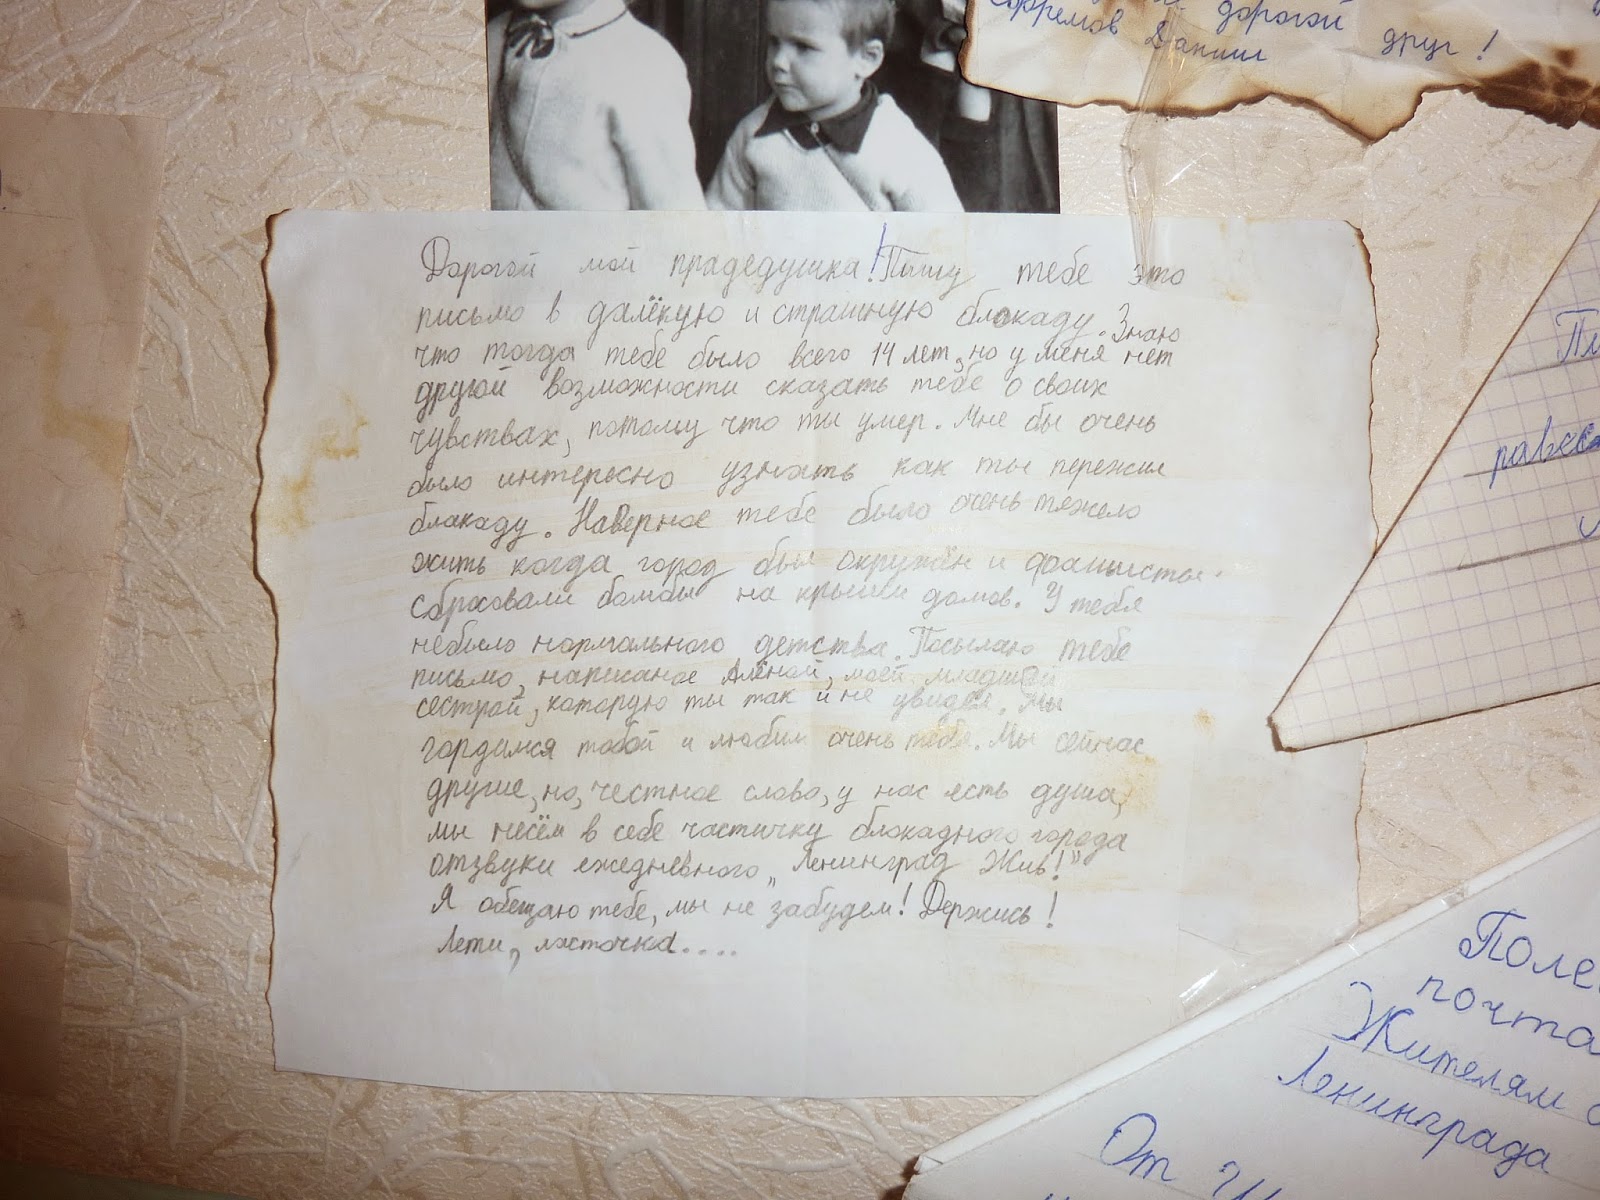 дорогой друг!
Ефремов Данил
Дорогой мой прадедушка! Пишу тебе это
письмо в далёкую и страшную блокаду. Знаю
что тогда тебе было всего 14 лет, но у меня нет
другой возможности сказать тебе о своих
чувствах, потому что ты умер. Мне бы очень
было интересно узнать как ты пережил
блакаду. Наверное тебе было очень тяжело
жить когда город был окружён и фашисты
сбрасовали бомбы на крыши домов. У тебя
небыло нормального детства. Посылаю тебе
письмо, написаное Алёной, моей младшей
сестрой, которую ты так и не увидел. Мы
гордимся тобой и любим очень тебя. Мы сейчас
другие, но, честное слово, у нас есть душа,
мы несём в себе частичку блокадного города
отзвуки ежедневного „Ленинград Жив!"
Я обещаю тебе, мы не забудем! Держись!
Лети, ласточка....
почта
Жителям
Ленинграда
От